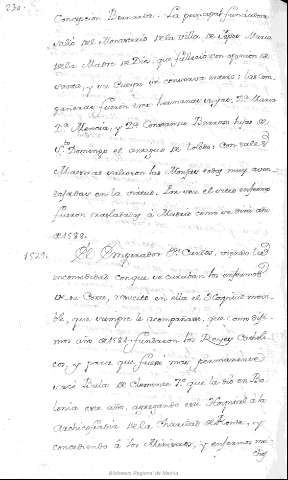 230.
Concepcion Bernarda. La principal fundadora
salió del Monasterio de la Villa de Yepes Maria
de la Madre de Dios, que falleció con opinion de
santa, y su Cuerpo se conserva entero: las Com-
pañeras fueron tres hermanas suyas, D.ª Maria
D.ª Mencia, y D.ª Constanza Barroso hijas de
S.to Domingo el antiguo de Toledo: con tales
Maestras salieron las Monjas muy aven-
tajadas en la virtud. Por ser el sitio enfermo
fueron trasladadas á Madrid como se dirá año
de 1588.
1529. El Emperador D.n Carlos, viendo la
incomodidad con que se curaban los enfermos
de su Corte, instituió en ella el Hospital movi-
ble, que siempre le acompañase, que como diji-
mos año de 1481 fundaron los Reyes Catoli-
cos, y para que fuese mas permanente
sacó Bula de Clemente 7.º que la dió en Bo-
lonia este año, agregando este Hospital á la
Archicofradia de la Charitas de Roma, y
concediendo á los Ministros, y enfermos mu-
chas
Biblioteca Regional de Madrid